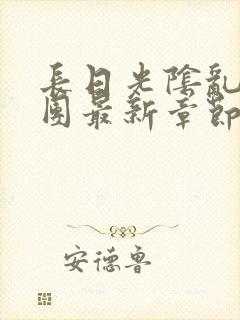 長日光陰亂
團最新章節
安德魯